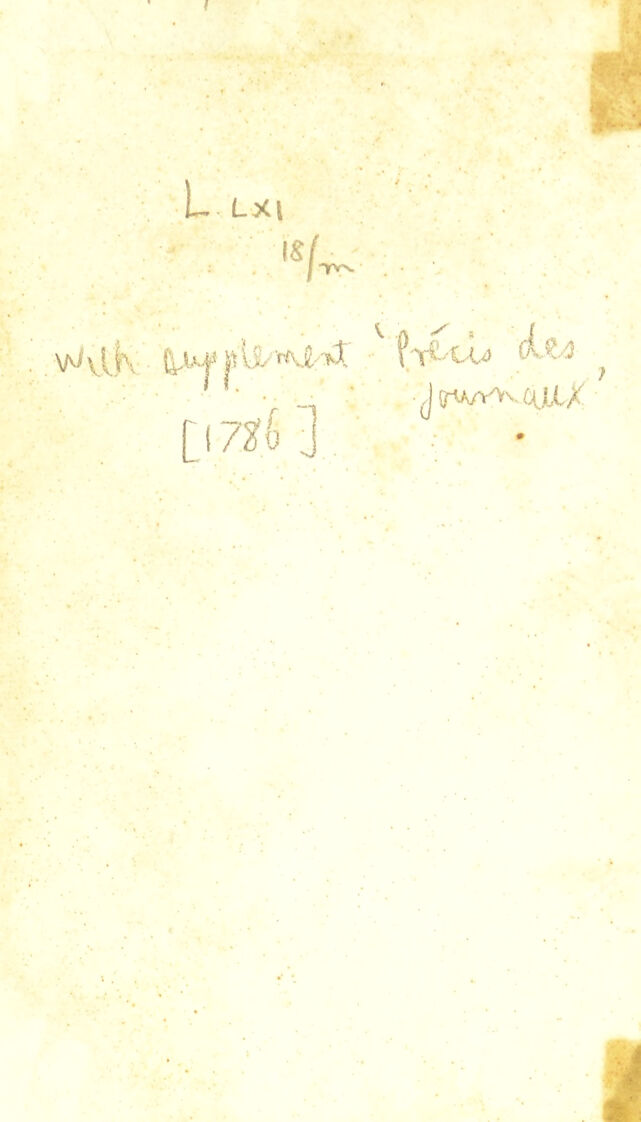 L LXI
18/m
With supplement 'Précis des
Journaux'
[1786]